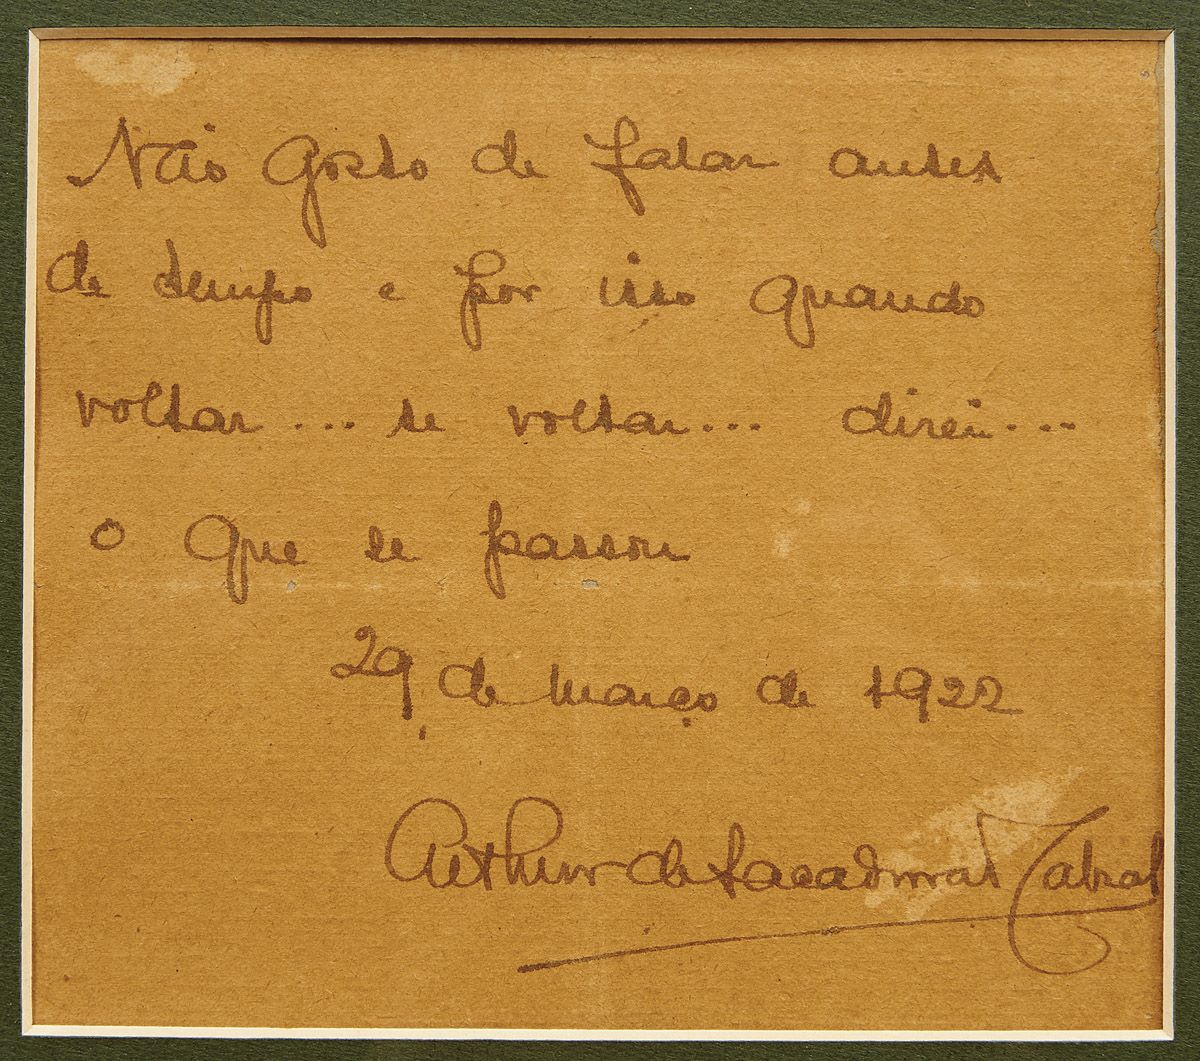 Não Gosto de falar antes
de tempo e por isso quando
voltar ... se voltar ... direi ...
o que se passou
29 de março de 1922
Arthur de Sacadura Cabral